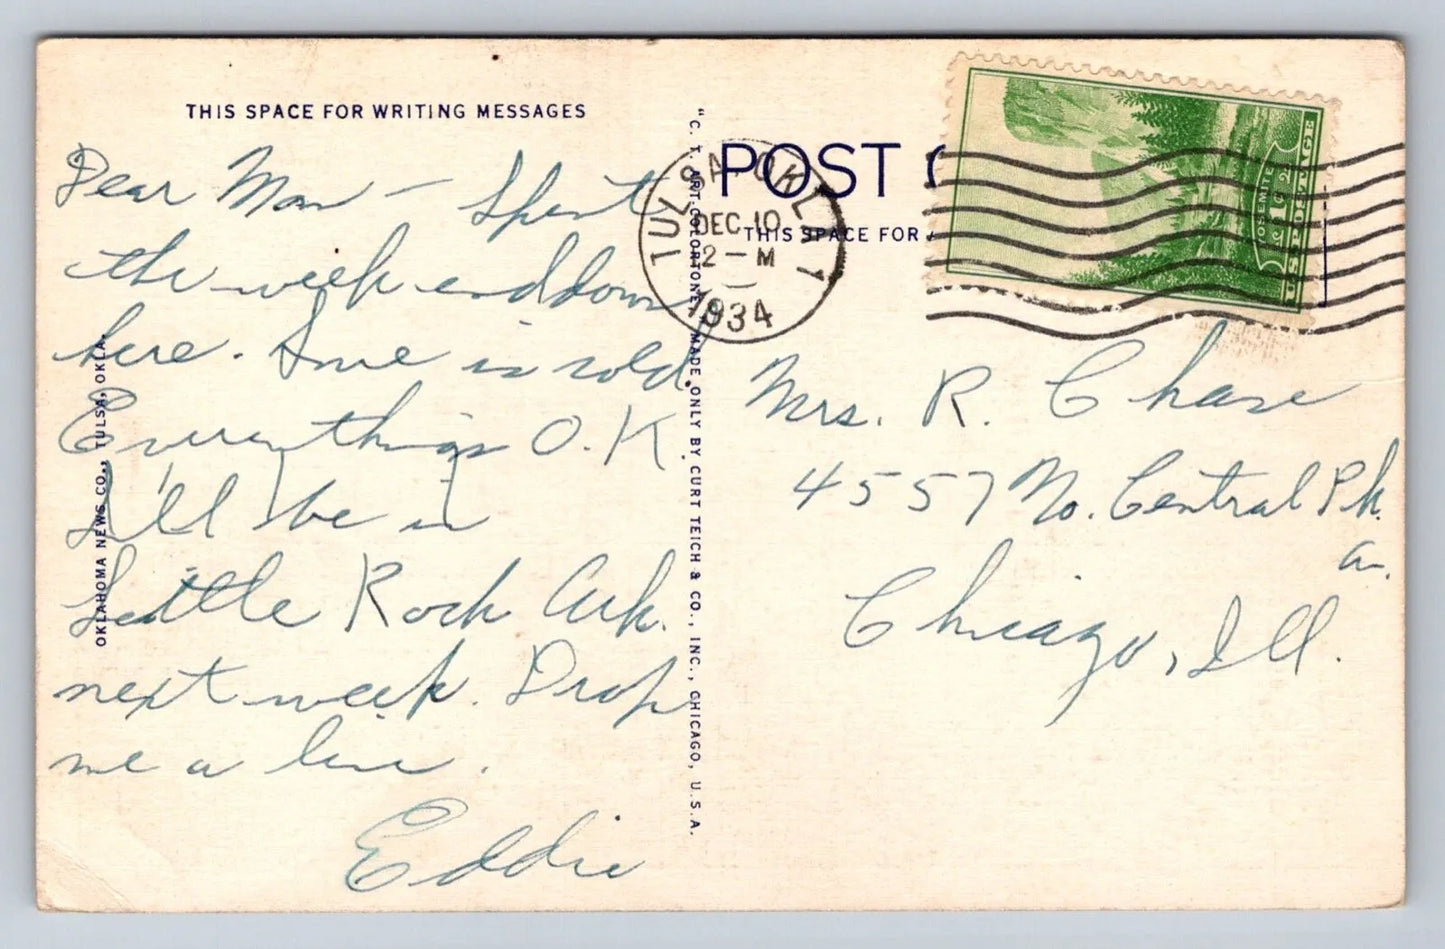 THIS SPACE FOR WRITING MESSAGES
Dear Mom – Spent
the week end down
here. Love is sold.
Everything O.K.
I'll be in
Little Rock Ark.
next week. Drop
me a line.
Eddie
OKLAHOMA NEWS CO., TULSA, OKLA.
"C. T. ART-COLORTONE" MADE ONLY BY CURT TEICH & CO., INC., CHICAGO, U.S.A.
POST C
THIS SPACE FOR A
TULSA, OKLA. 1
DEC 10
2 – M
1934
YOSEMITE
1¢
U.S. POSTAGE
Mrs. R. Chase
4557 No. Central Pk.
Av.
Chicago, Ill.